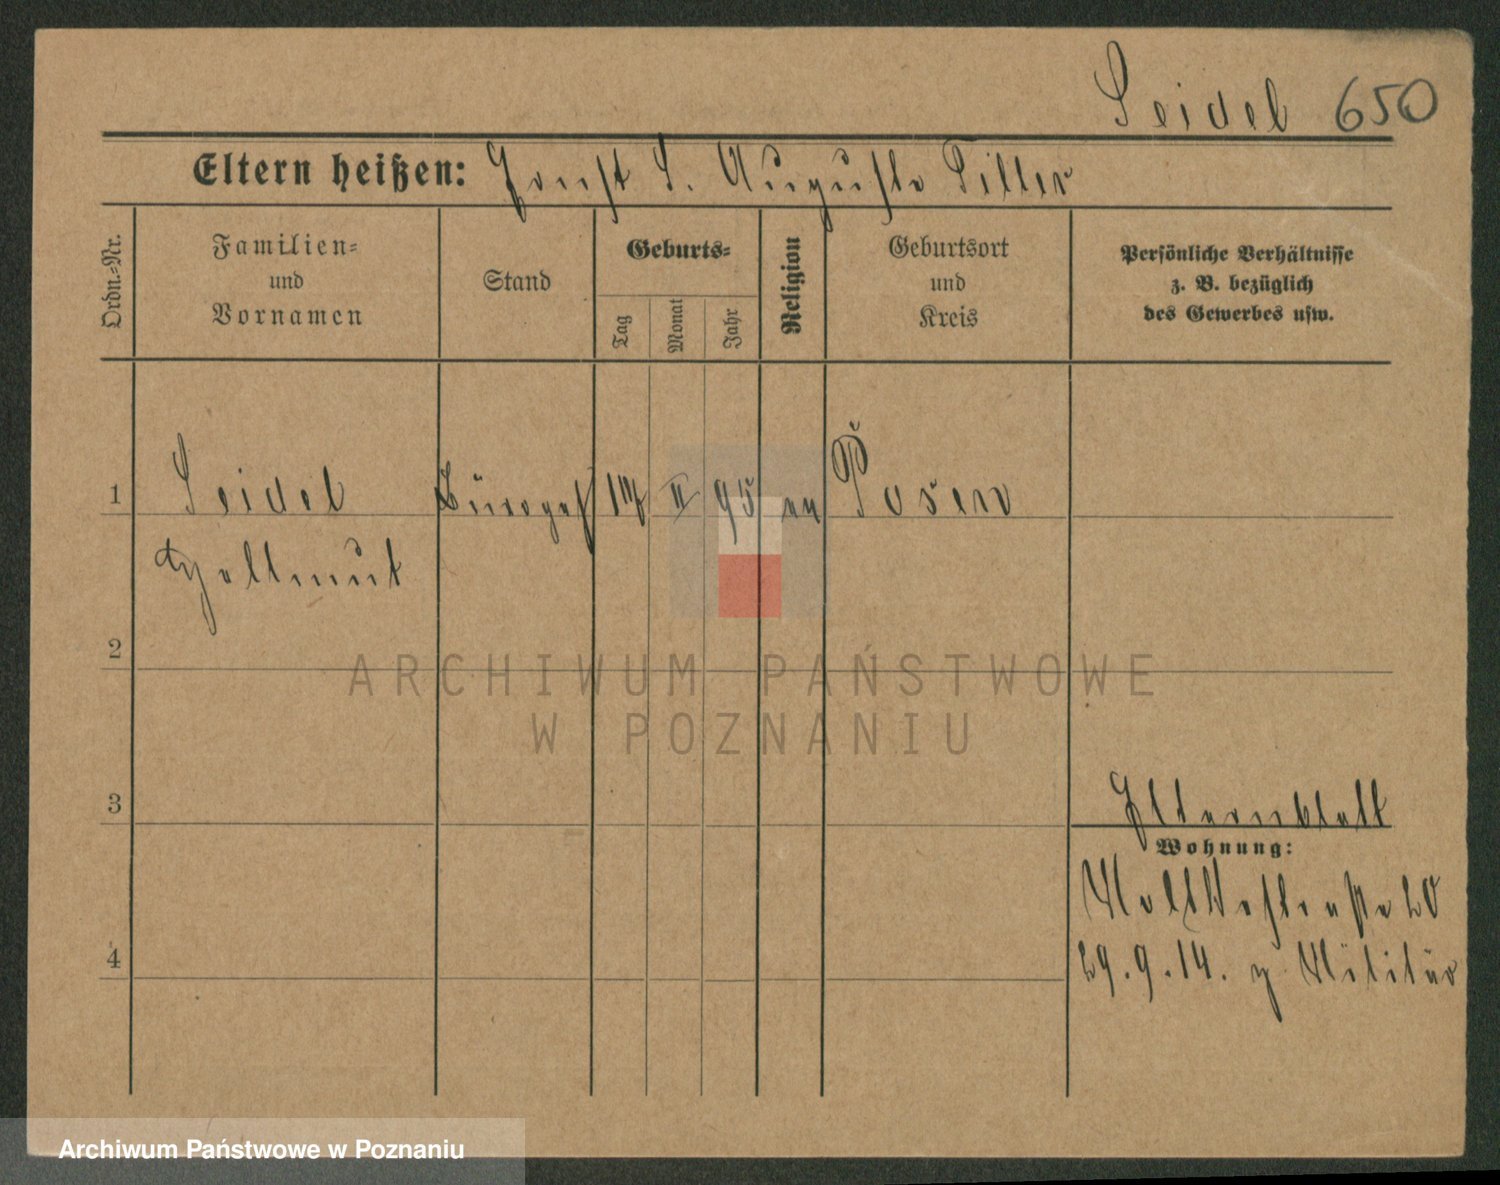 Seidel 650
Eltern heißen: Ernst S. Auguste Tiller
Ordn.=Nr.
Familien=
und
Vornamen
Stand
Geburts=
Tag
Monat
Jahr
Religion
Geburtsort
und
Kreis
Persönliche Verhältnisse
z. B. bezüglich
des Gewerbes usw.
1 Seidel Bürogeh II 95 Posen
Hellmut
2
3
4
Elternblatt
Wohnung:
20
29.9.14. z Militär
ARCHIWUM PAŃSTWOWE
W POZNANIU
Archiwum Państwowe w Poznaniu